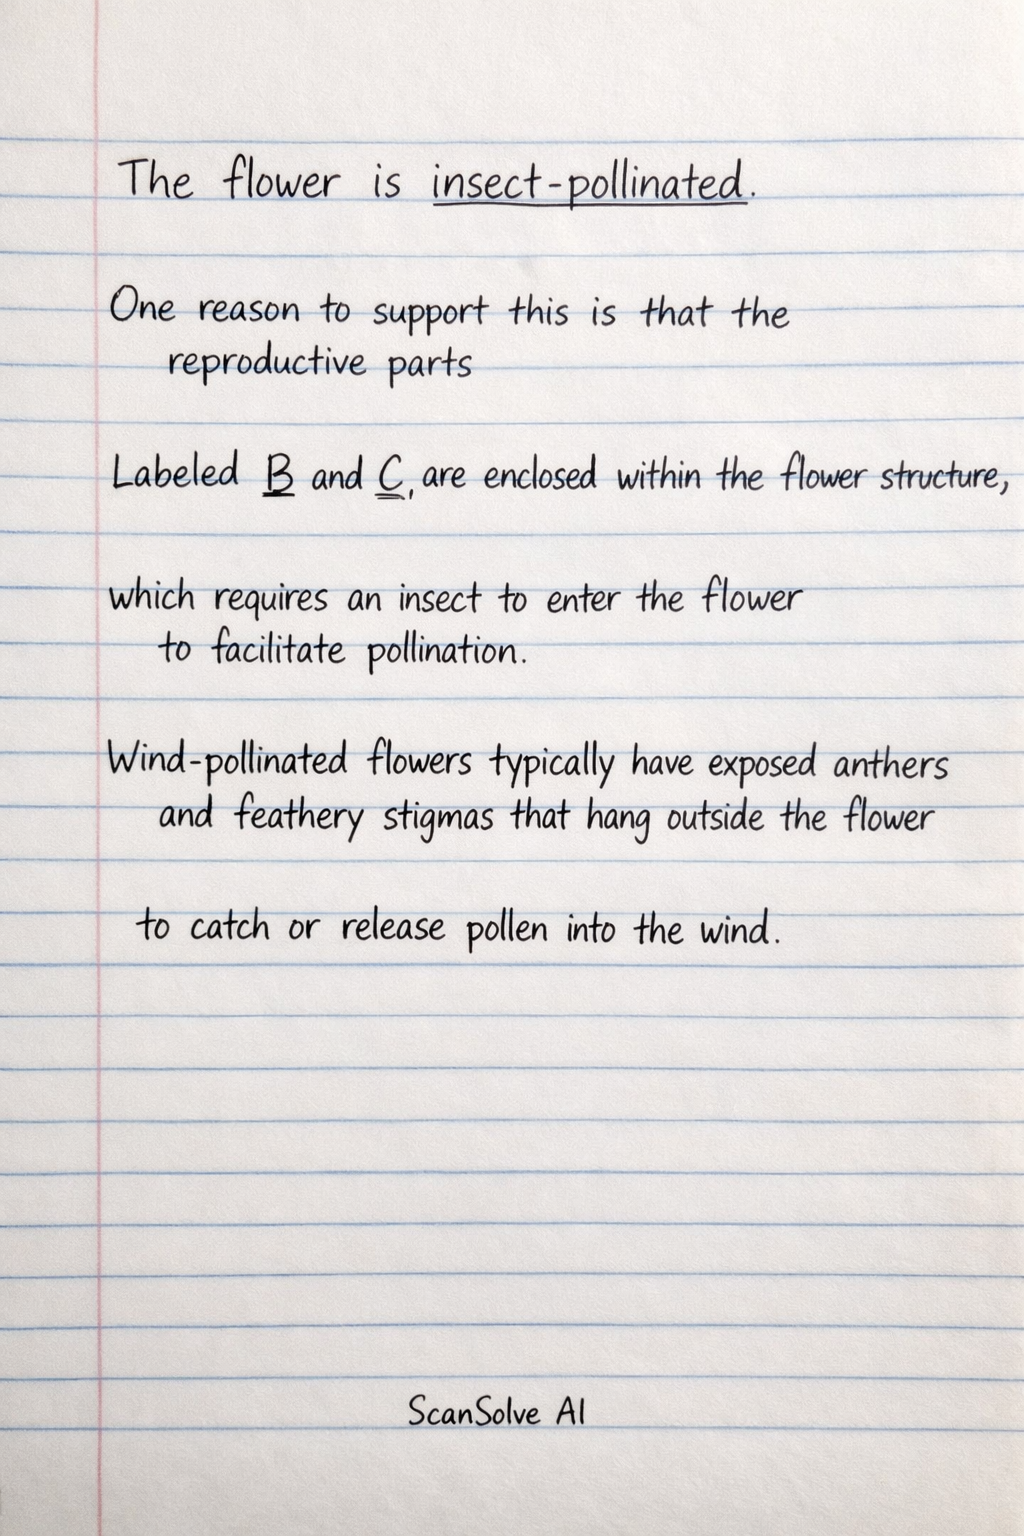 The flower is insect-pollinated.
One reason to support this is that the
reproductive parts
Labeled B and C, are enclosed within the flower structure,
which requires an insect to enter the flower
to facilitate pollination.
Wind-pollinated flowers typically have exposed anthers
and feathery stigmas that hang outside the flower
to catch or release pollen into the wind.
ScanSolve AI